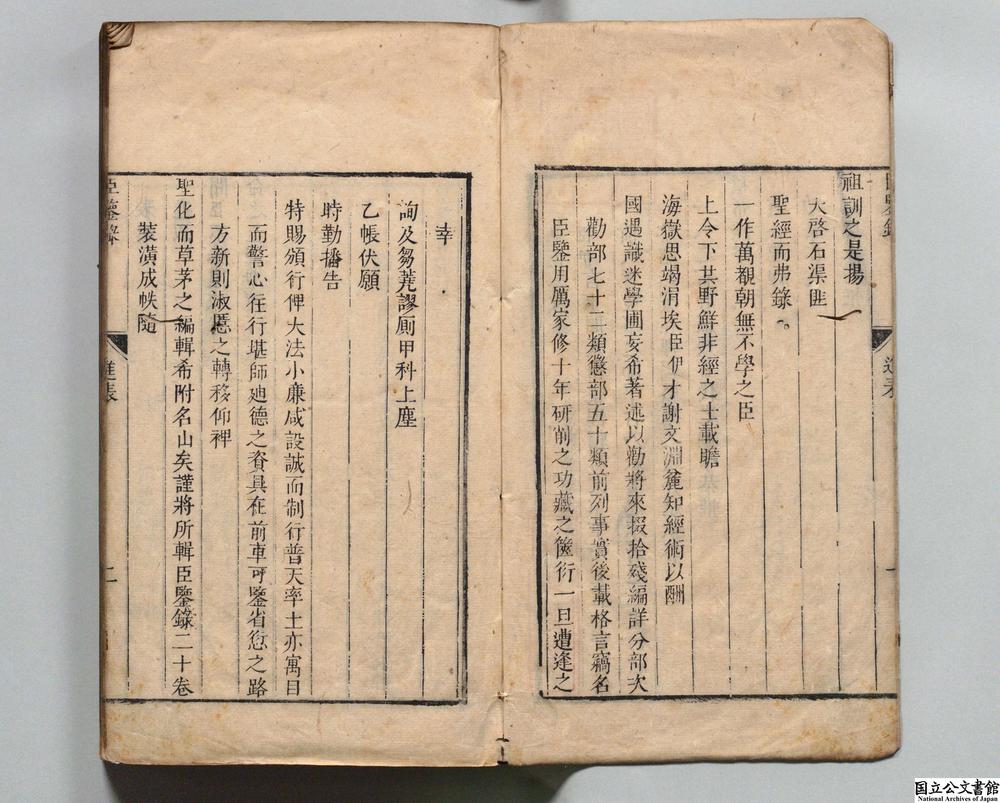 祖訓之是揚
大啓石渠匪
聖經而弗錄
一作萬覩朝無不學之臣
上令下其野鮮非經之士載瞻
海嶽思竭涓埃臣伊才謝文淵麄知經術以酬
國遇識迷學圃妄希著述以勸將來掇拾殘編詳分部次
勸部七十二類懲部五十類前列事實後載格言竊名
臣鑒用厲家修十年研削之功藏之篋衍一旦遭逢之
幸
詢及芻蕘謬廁甲科上塵
乙帳伏願
時勤播告
特賜頒行俾大法小廉咸設誠而制行普天率土亦寓目
而警心往行堪師廸德之資具在前車可鑒省愆之路
方新則淑慝之轉移仰裨
聖化而草茅之編輯希附名山矣謹將所輯臣鑒錄二十卷
裝潢成帙隨
臣鑒錄
進表
二
臣鑒錄
進表
一
国立公文書館
National Archives of Japan